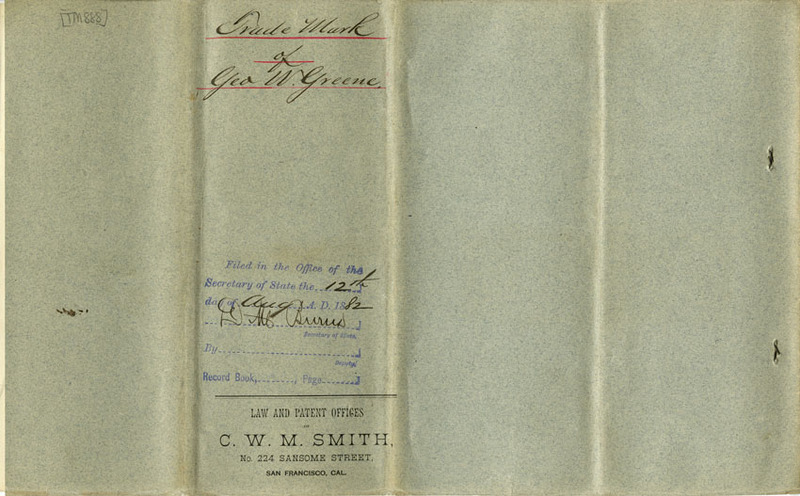 [TM888]
Trade Mark
of
Geo W. Greene.
Filed in the Office of the
Secretary of State the 12th
day of Aug A. D. 1882
D. M. Burns
Secretary of State,
By
Deputy,
Record Book, , Page
LAW AND PATENT OFFICES
OF
C. W. M. SMITH,
No. 224 SANSOME STREET,
SAN FRANCISCO, CAL.